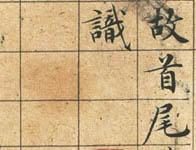 故首尾
識